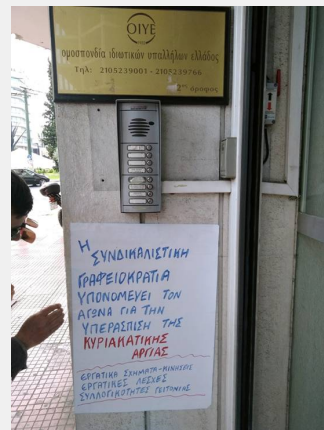 ΟΙΥΕ
ομοσπονδία ιδιωτικών υπαλλήλων ελλάδος
Τηλ: 2105239001 - 2105239766
2ος όροφος
Η
ΣΥΝΔΙΚΑΛΙΣΤΙΚΗ
ΓΡΑΦΕΙΟΚΡΑΤΙΑ
ΥΠΟΝΟΜΕΥΕΙ ΤΟΝ
ΑΓΩΝΑ ΓΙΑ ΤΗΝ
ΥΠΕΡΑΣΠΙΣΗ ΤΗΣ
ΚΥΡΙΑΚΑΤΙΚΗΣ
ΑΡΓΙΑΣ
ΕΡΓΑΤΙΚΑ ΣΧΗΜΑΤΑ-ΚΙΝΗΣΕΙΣ
ΕΡΓΑΤΙΚΕΣ ΛΕΣΧΕΣ
ΣΥΛΛΟΓΙΚΟΤΗΤΕΣ ΓΕΙΤΟΝΙΑΣ